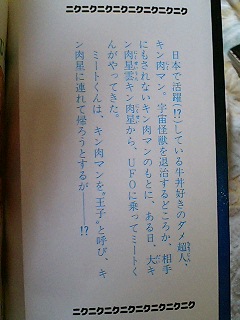 ニクニクニクニクニクニクニクニクニク
日本で活躍(!?)している牛丼好きのダメ超人、
キン肉マン。宇宙怪獣を退治するどころか、相手
にもされないキン肉マンのもとに、ある日、大キ
ン肉星雲キン肉星から、UFOに乗ってミートく
んがやってきた。
ミートくんは、キン肉マンを“王子”と呼び、キ
ン肉星に連れて帰ろうとするが――!?
ニクニクニクニクニクニクニクニクニク